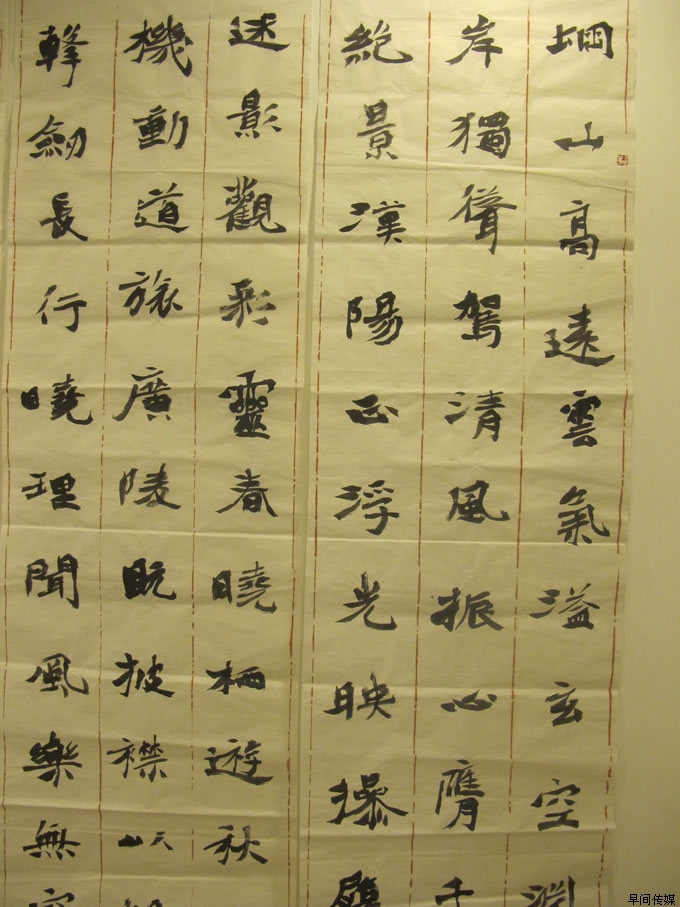 堈山高遠雲氣溢玄空渊
岸獨聳駕清風振心膺千
絶景漢陽正浮光映操
迷影觀彩靈春曉栖遊秋
機動道旅廣陵眈披襟以天
舉劒長行曉理聞風樂無
早间传媒